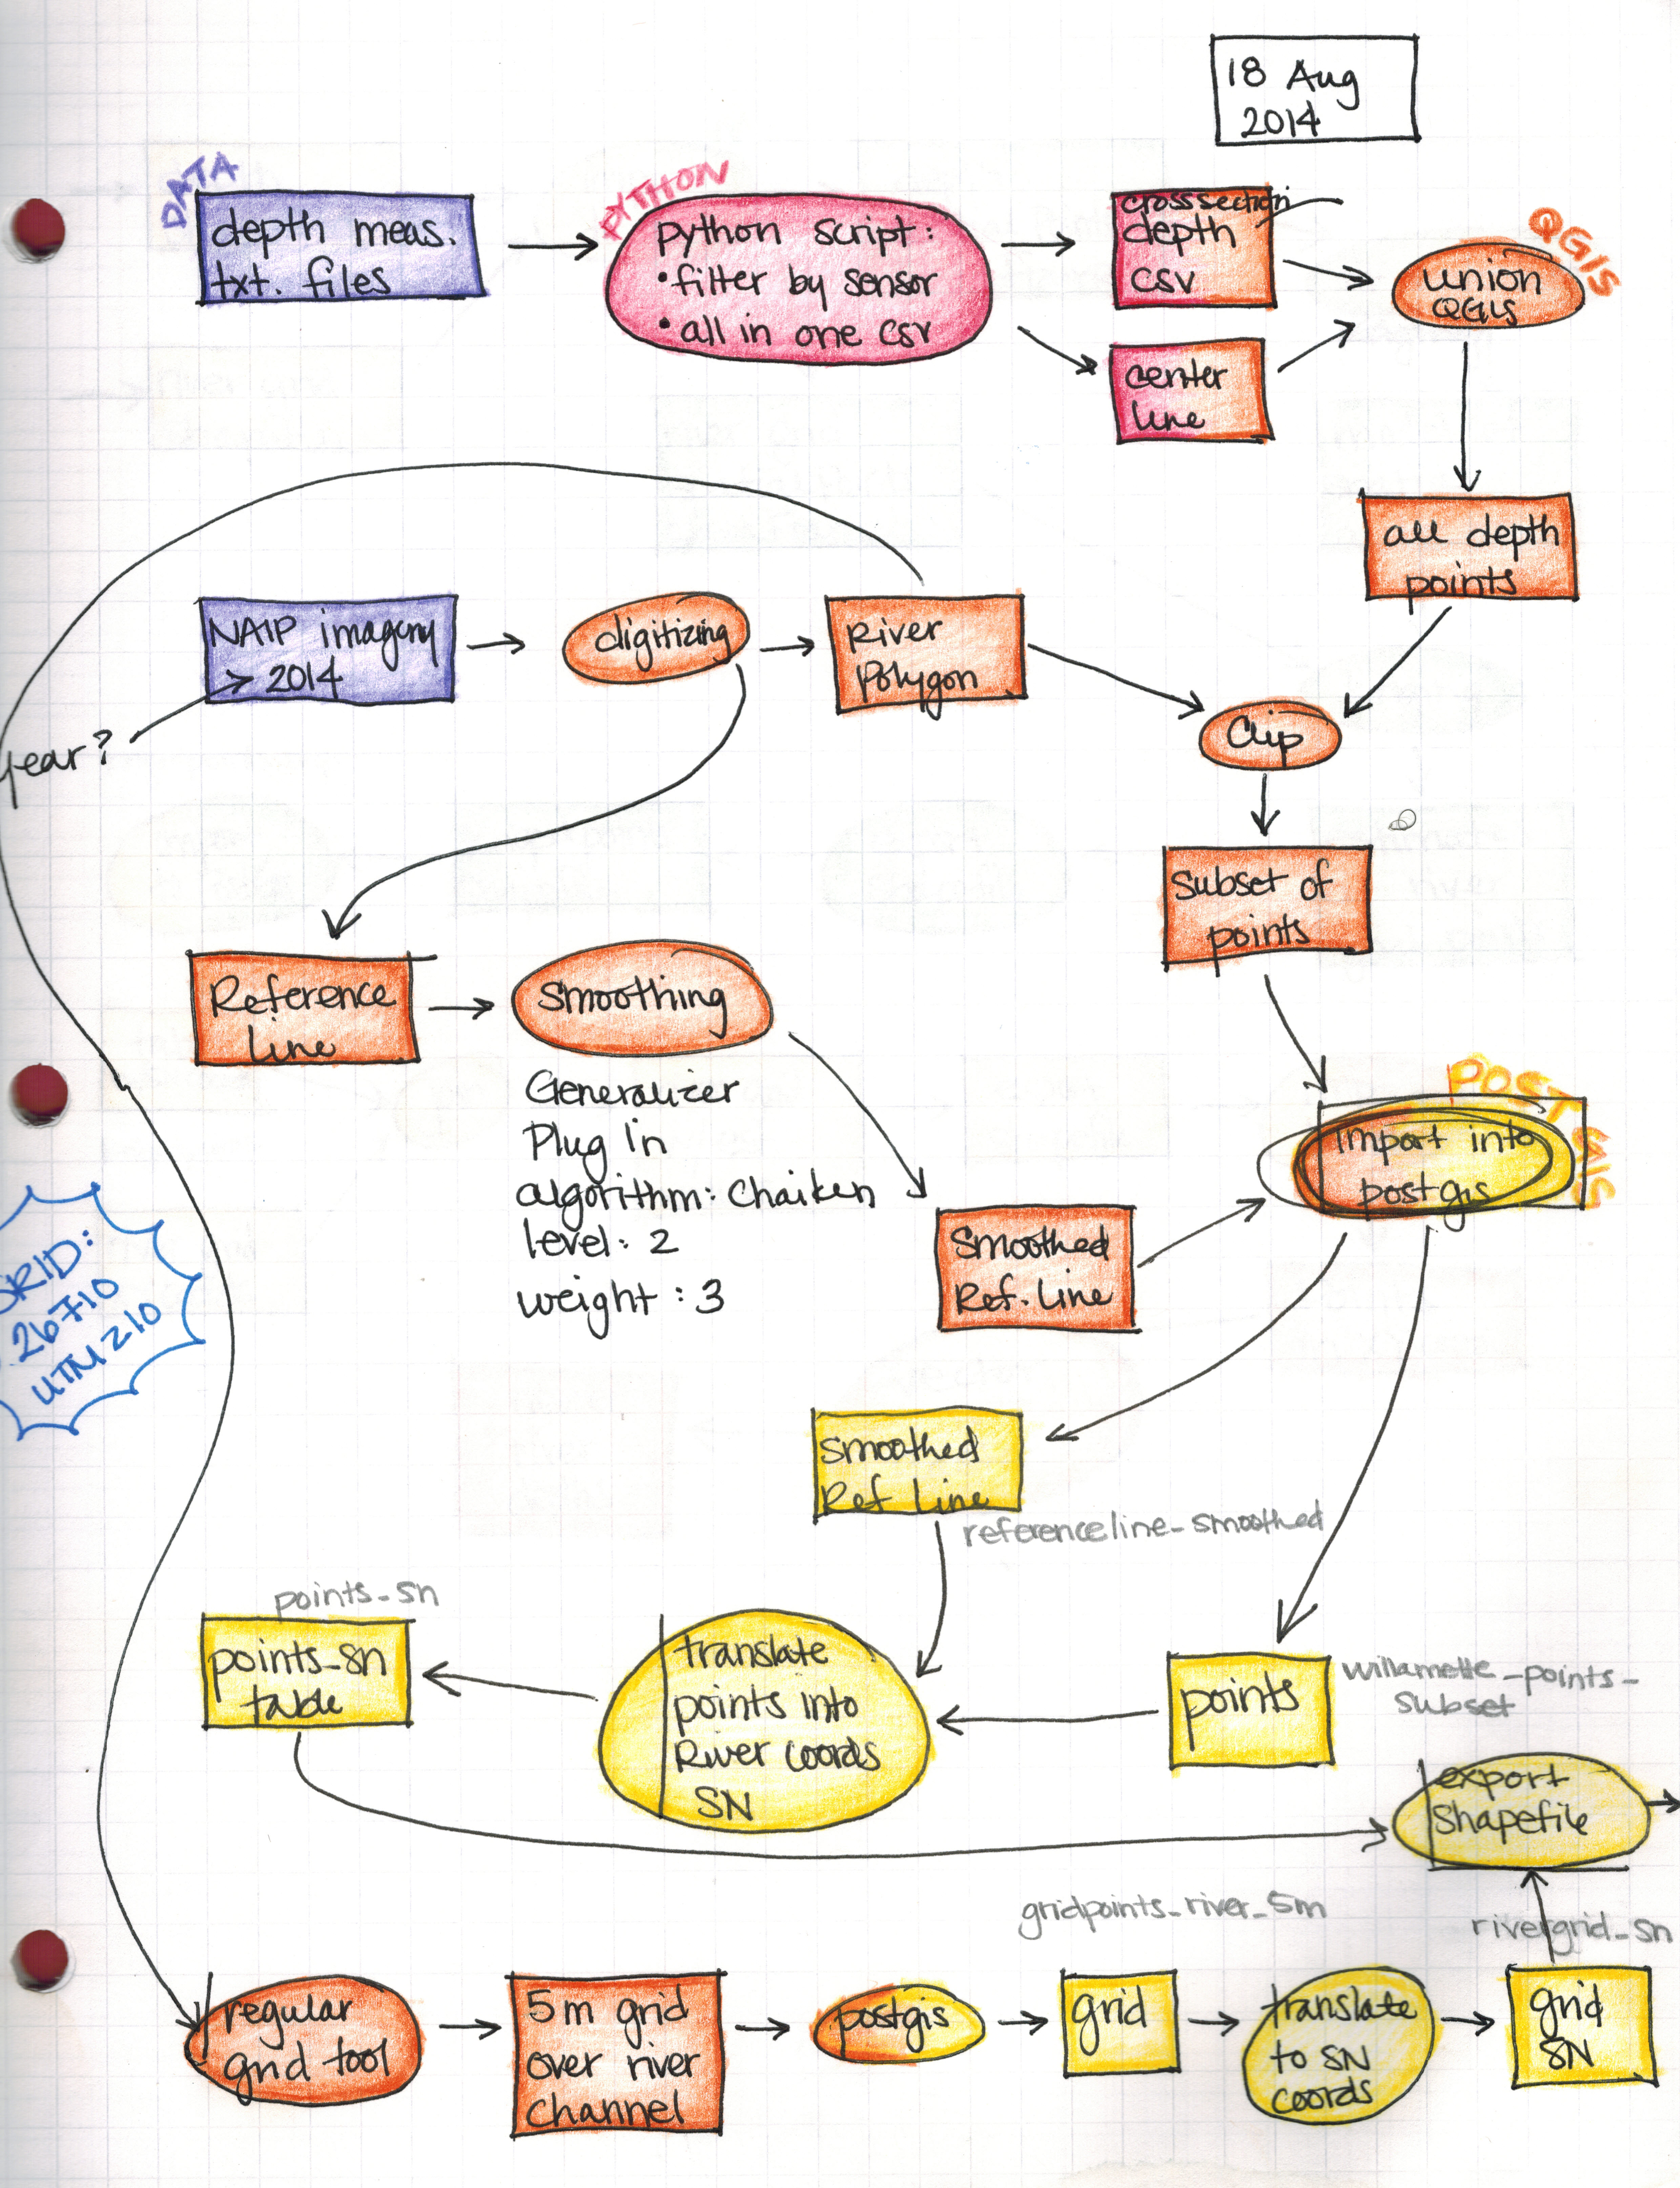 18 Aug
2014
DATA
depth meas.
txt. files
PYTHON
python script:
• filter by sensor
• all in one csv
crosssection
depth
csv
center
line
QGIS
union
QGIS
all depth
points
NAIP imagery
> 2014
year?
digitizing
River
Polygon
Clip
Subset of
points
Reference
Line
Smoothing
Generalizer
Plug in
algorithm: Chaiken
level: 2
weight: 3
Smoothed
Ref. Line
POST GIS
import into
postgis
SRID:
26710
UTM z10
smoothed
Ref Line
referenceline_smoothed
points_sn
points_sn
table
translate
points into
River coords
SN
points
willamette_points_
subset
export
Shapefile
gridpoints_river_5m
rivergrid_sn
regular
grid tool
5m grid
over river
channel
postgis
grid
translate
to SN
coords
grid
SN